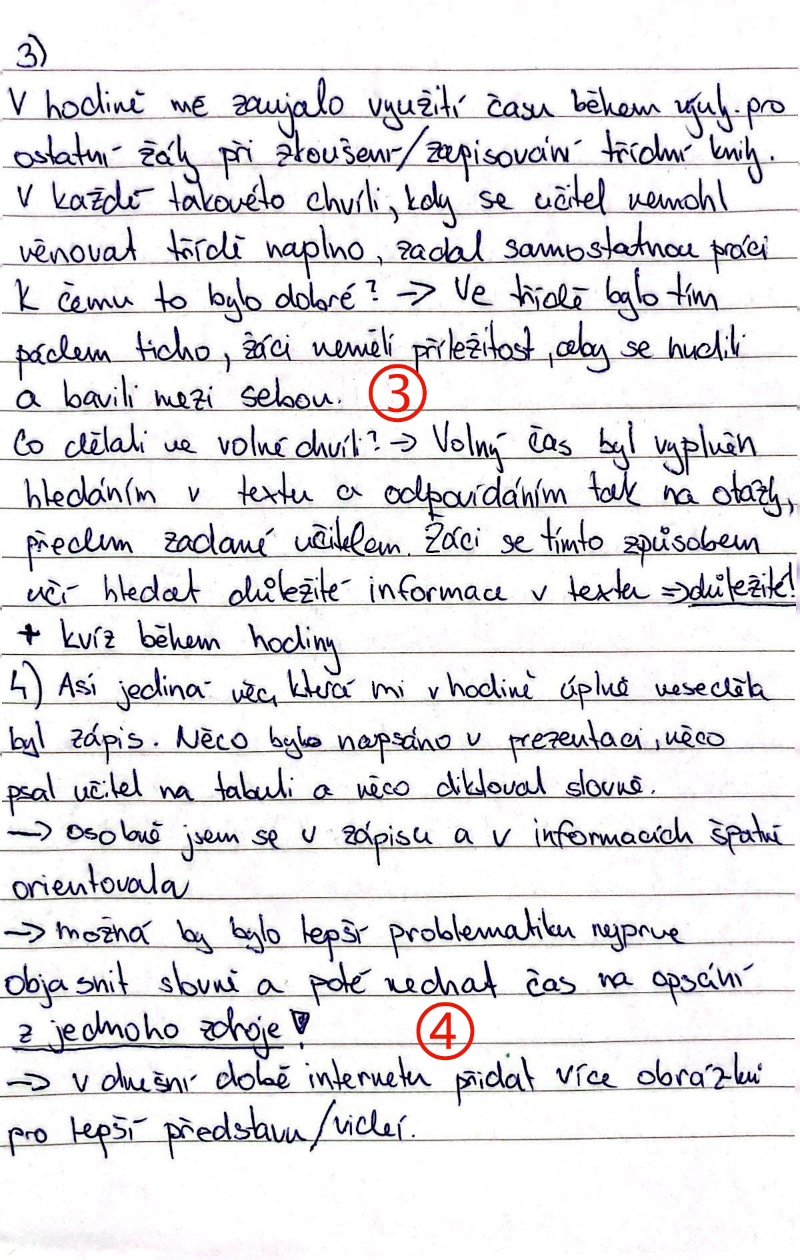 3)
V hodině mě zaujalo využití času během výuky pro
ostatní žáky při zkoušení/zapisování třídní knihy.
V každé takovéto chvíli, kdy se učitel nemohl
věnovat třídě naplno, zadal samostatnou práci
K čemu to bylo dobré? → Ve třídě bylo tím
pádem ticho, žáci neměli příležitost, aby se nudili
a bavili mezi sebou. 3
Co dělali ve volné chvíli? → Volný čas byl vyplněn
hledáním v textu a odpovídáním tak na otázky,
předem zadané učitelem. Žáci se tímto způsobem
učí hledat důležité informace v textu ⇒ důležité!
+ kvíz během hodiny
4) Asi jediná věc, která mi v hodině úplně neseděla
byl zápis. Něco bylo napsáno v prezentaci, něco
psal učitel na tabuli a něco diktoval slovně.
→ osobně jsem se v zápisu a v informacích špatně
orientovala
→ možná by bylo lepší problematiku nejprve
objasnit slovně a poté nechat čas na opsání
z jednoho zdroje! 4
→ v dnešní době internetu přidat více obrázků
pro lepší představu/videí.